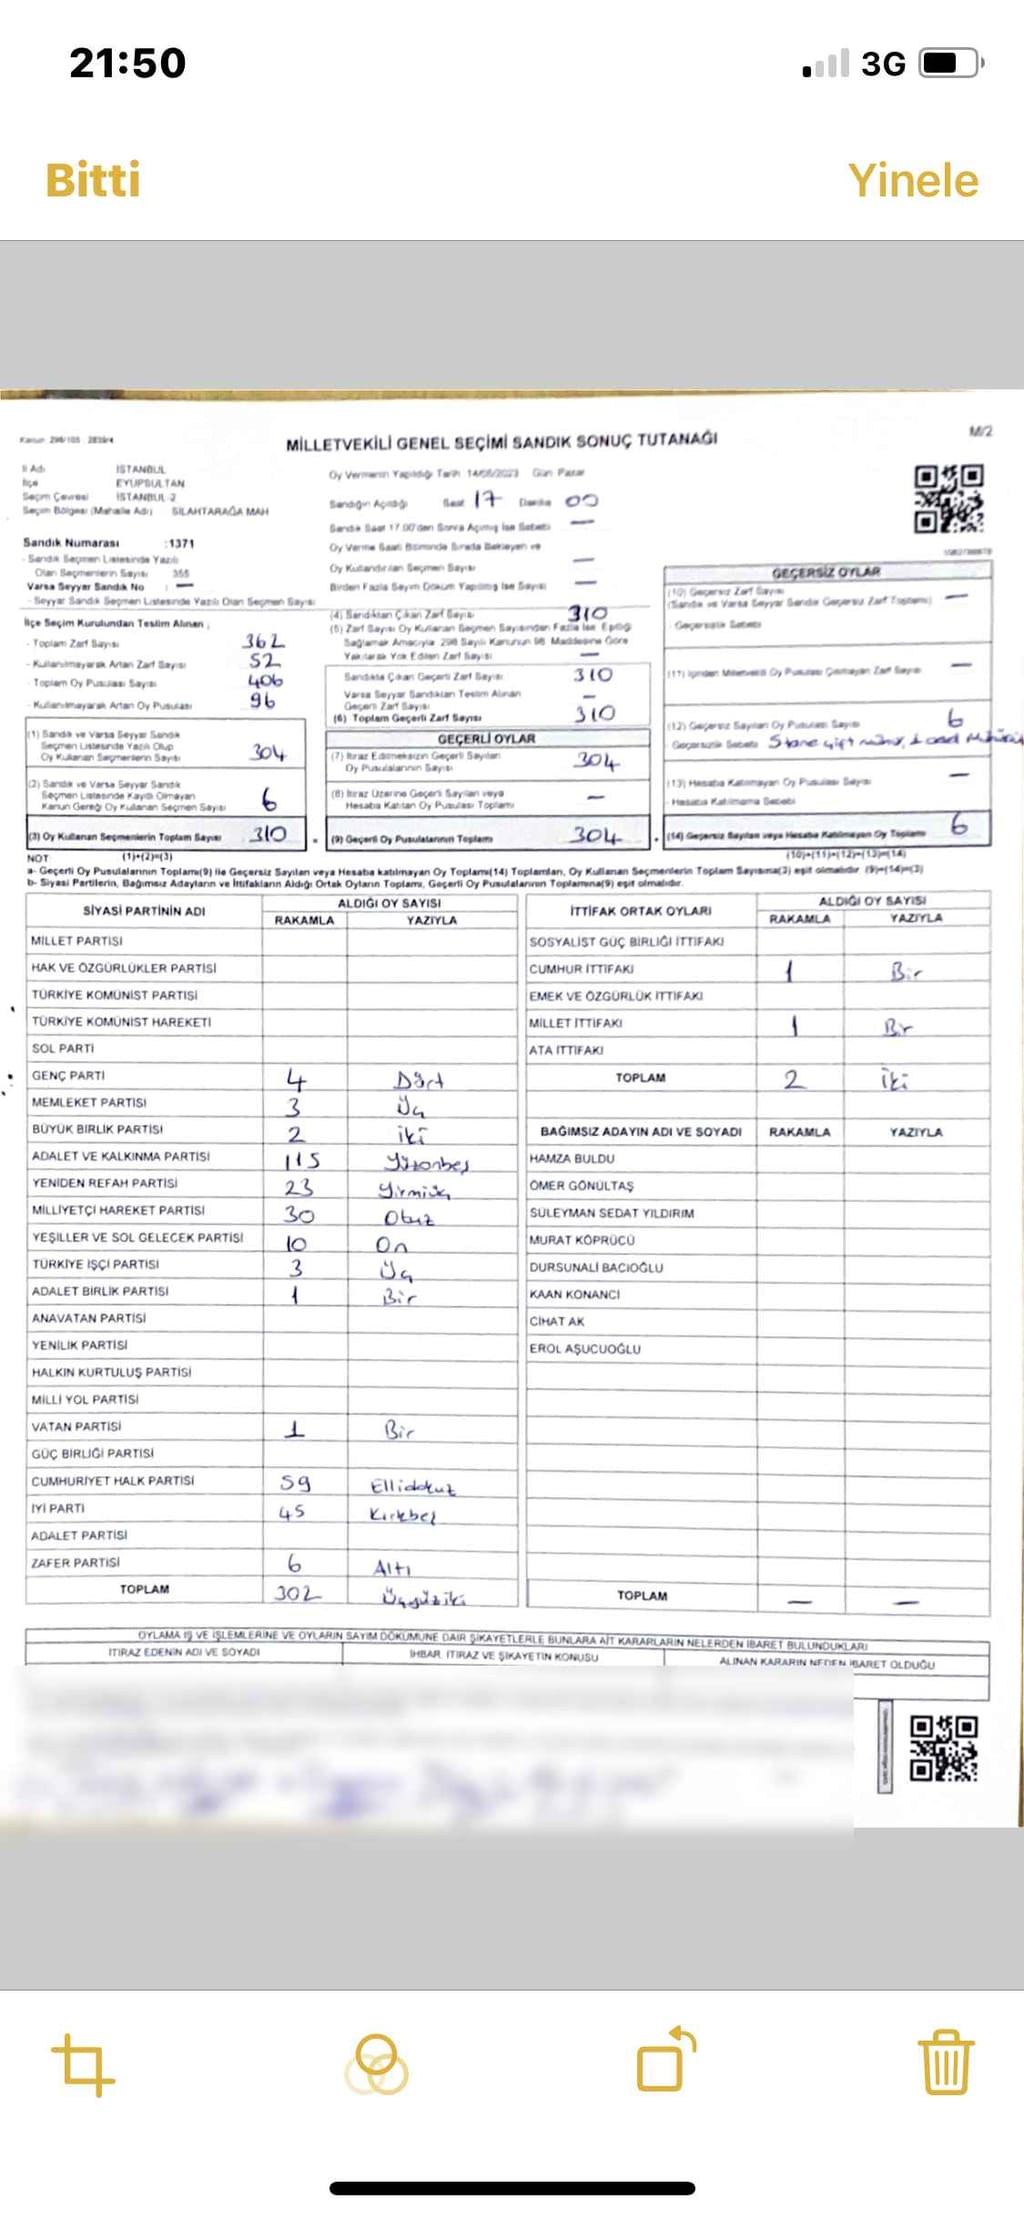 21:50
3G
Bitti
Yinele
M/2
MİLLETVEKİLİ GENEL SEÇİMİ SANDIK SONUÇ TUTANAĞI
İl Adı İSTANBUL
İlçe EYÜPSULTAN
Seçim Çevresi İSTANBUL-2
Seçim Bölgesi (Mahalle Adı) SİLAHTARAĞA MAH
Sandık Numarası :1371
- Sandık Seçmen Listesinde Yazılı
Olan Seçmenlerin Sayısı 355
Varsa Seyyar Sandık No : —
- Seyyar Sandık Seçmen Listesinde Yazılı Olan Seçmen Sayısı
Oy Vermenin Yapıldığı Tarih 14/05/2023 Gün Pazar
Sandığın Açıldığı Saat 17 Dakika 00
Sandık Saat 17.00'den Sonra Açılmış İse Sebebi —
Oy Verme Saati Bitiminde Sırada Bekleyen ve
Oy Kullandırılan Seçmen Sayısı —
Birden Fazla Sayım Döküm Yapılmış İse Sayısı —
İlçe Seçim Kurulundan Teslim Alınan ;
- Toplam Zarf Sayısı 362
- Kullanılmayarak Artan Zarf Sayısı 52
- Toplam Oy Pusulası Sayısı 406
- Kullanılmayarak Artan Oy Pusulası 96
(1) Sandık ve Varsa Seyyar Sandık
Seçmen Listesinde Yazılı Olup
Oy Kullanan Seçmenlerin Sayısı 304
(2) Sandık ve Varsa Seyyar Sandık
Seçmen Listesinde Kayıtlı Olmayan
Kanun Gereği Oy Kullanan Seçmen Sayısı 6
(3) Oy Kullanan Seçmenlerin Toplam Sayısı 310
(1)+(2)=(3)
(4) Sandıktan Çıkan Zarf Sayısı 310
(5) Zarf Sayısı Oy Kullanan Seçmen Sayısından Fazla İse Eşitliği
Sağlamak Amacıyla 298 Sayılı Kanunun 98. Maddesine Göre
Yakılarak Yok Edilen Zarf Sayısı —
Sandıkta Çıkan Geçerli Zarf Sayısı 310
Varsa Seyyar Sandıktan Teslim Alınan
Geçerli Zarf Sayısı —
(6) Toplam Geçerli Zarf Sayısı 310
GEÇERLİ OYLAR
(7) İtiraz Edilmeksizin Geçerli Sayılan
Oy Pusulalarının Sayısı 304
(8) İtiraz Üzerine Geçerli Sayılan veya
Hesaba Katılan Oy Pusulası Toplamı —
(9) Geçerli Oy Pusulalarının Toplamı 304
GEÇERSİZ OYLAR
(10) Geçersiz Zarf Sayısı
(Sandık ve Varsa Seyyar Sandık Geçersiz Zarf Toplamı) —
Geçersizlik Sebebi
(11) İçinden Milletvekili Oy Pusulası Çıkmayan Zarf Sayısı —
(12) Geçersiz Sayılan Oy Pusulası Sayısı 6
Geçersizlik Sebebi çift mühür,
(13) Hesaba Katılmayan Oy Pusulası Sayısı —
- Hesaba Katılmama Sebebi
(14) Geçersiz Sayılan veya Hesaba Katılmayan Oy Toplamı 6
(10)+(11)+(12)+(13)=(14)
NOT
a- Geçerli Oy Pusulalarının Toplamı(9) ile Geçersiz Sayılan veya Hesaba katılmayan Oy Toplamı(14) Toplamları, Oy Kullanan Seçmenlerin Toplam Sayısına(3) eşit olmalıdır (9)+(14)=(3)
b- Siyasi Partilerin, Bağımsız Adayların ve İttifakların Aldığı Ortak Oyların Toplamı, Geçerli Oy Pusulalarının Toplamına(9) eşit olmalıdır.
SİYASİ PARTİNİN ADI
ALDIĞI OY SAYISI
RAKAMLA YAZIYLA
MİLLET PARTİSİ
HAK VE ÖZGÜRLÜKLER PARTİSİ
TÜRKİYE KOMÜNİST PARTİSİ
TÜRKİYE KOMÜNİST HAREKETİ
SOL PARTİ
GENÇ PARTİ 4 Dört
MEMLEKET PARTİSİ 3 Üç
BÜYÜK BİRLİK PARTİSİ 2 iki
ADALET VE KALKINMA PARTİSİ 115 Yüzonbeş
YENİDEN REFAH PARTİSİ 23 Yirmiüç
MİLLİYETÇİ HAREKET PARTİSİ 30 Otuz
YEŞİLLER VE SOL GELECEK PARTİSİ 10 On
TÜRKİYE İŞÇİ PARTİSİ 3 Üç
ADALET BİRLİK PARTİSİ 1 Bir
ANAVATAN PARTİSİ
YENİLİK PARTİSİ
HALKIN KURTULUŞ PARTİSİ
MİLLİ YOL PARTİSİ
VATAN PARTİSİ 1 Bir
GÜÇ BİRLİĞİ PARTİSİ
CUMHURİYET HALK PARTİSİ 59 Ellidokuz
İYİ PARTİ 45 Kırkbeş
ADALET PARTİSİ
ZAFER PARTİSİ 6 Altı
TOPLAM 302 Üçyüziki
İTTİFAK ORTAK OYLARI
ALDIĞI OY SAYISI
RAKAMLA YAZIYLA
SOSYALİST GÜÇ BİRLİĞİ İTTİFAKI
CUMHUR İTTİFAKI 1 Bir
EMEK VE ÖZGÜRLÜK İTTİFAKI
MİLLET İTTİFAKI 1 Bir
ATA İTTİFAKI
TOPLAM 2 iki
BAĞIMSIZ ADAYIN ADI VE SOYADI RAKAMLA YAZIYLA
HAMZA BULDU
ÖMER GÖNÜLTAŞ
SÜLEYMAN SEDAT YILDIRIM
MURAT KÖPRÜCÜ
DURSUNALİ BACIOĞLU
KAAN KONANCI
CİHAT AK
EROL AŞUCUOĞLU
TOPLAM — —
OYLAMA İŞ VE İŞLEMLERİNE VE OYLARIN SAYIM DÖKÜMÜNE DAİR ŞİKAYETLERLE BUNLARA AİT KARARLARIN NELERDEN İBARET BULUNDUKLARI
İTİRAZ EDENİN ADI VE SOYADI
İHBAR, İTİRAZ VE ŞİKAYETİN KONUSU
ALINAN KARARIN NEDEN İBARET OLDUĞU